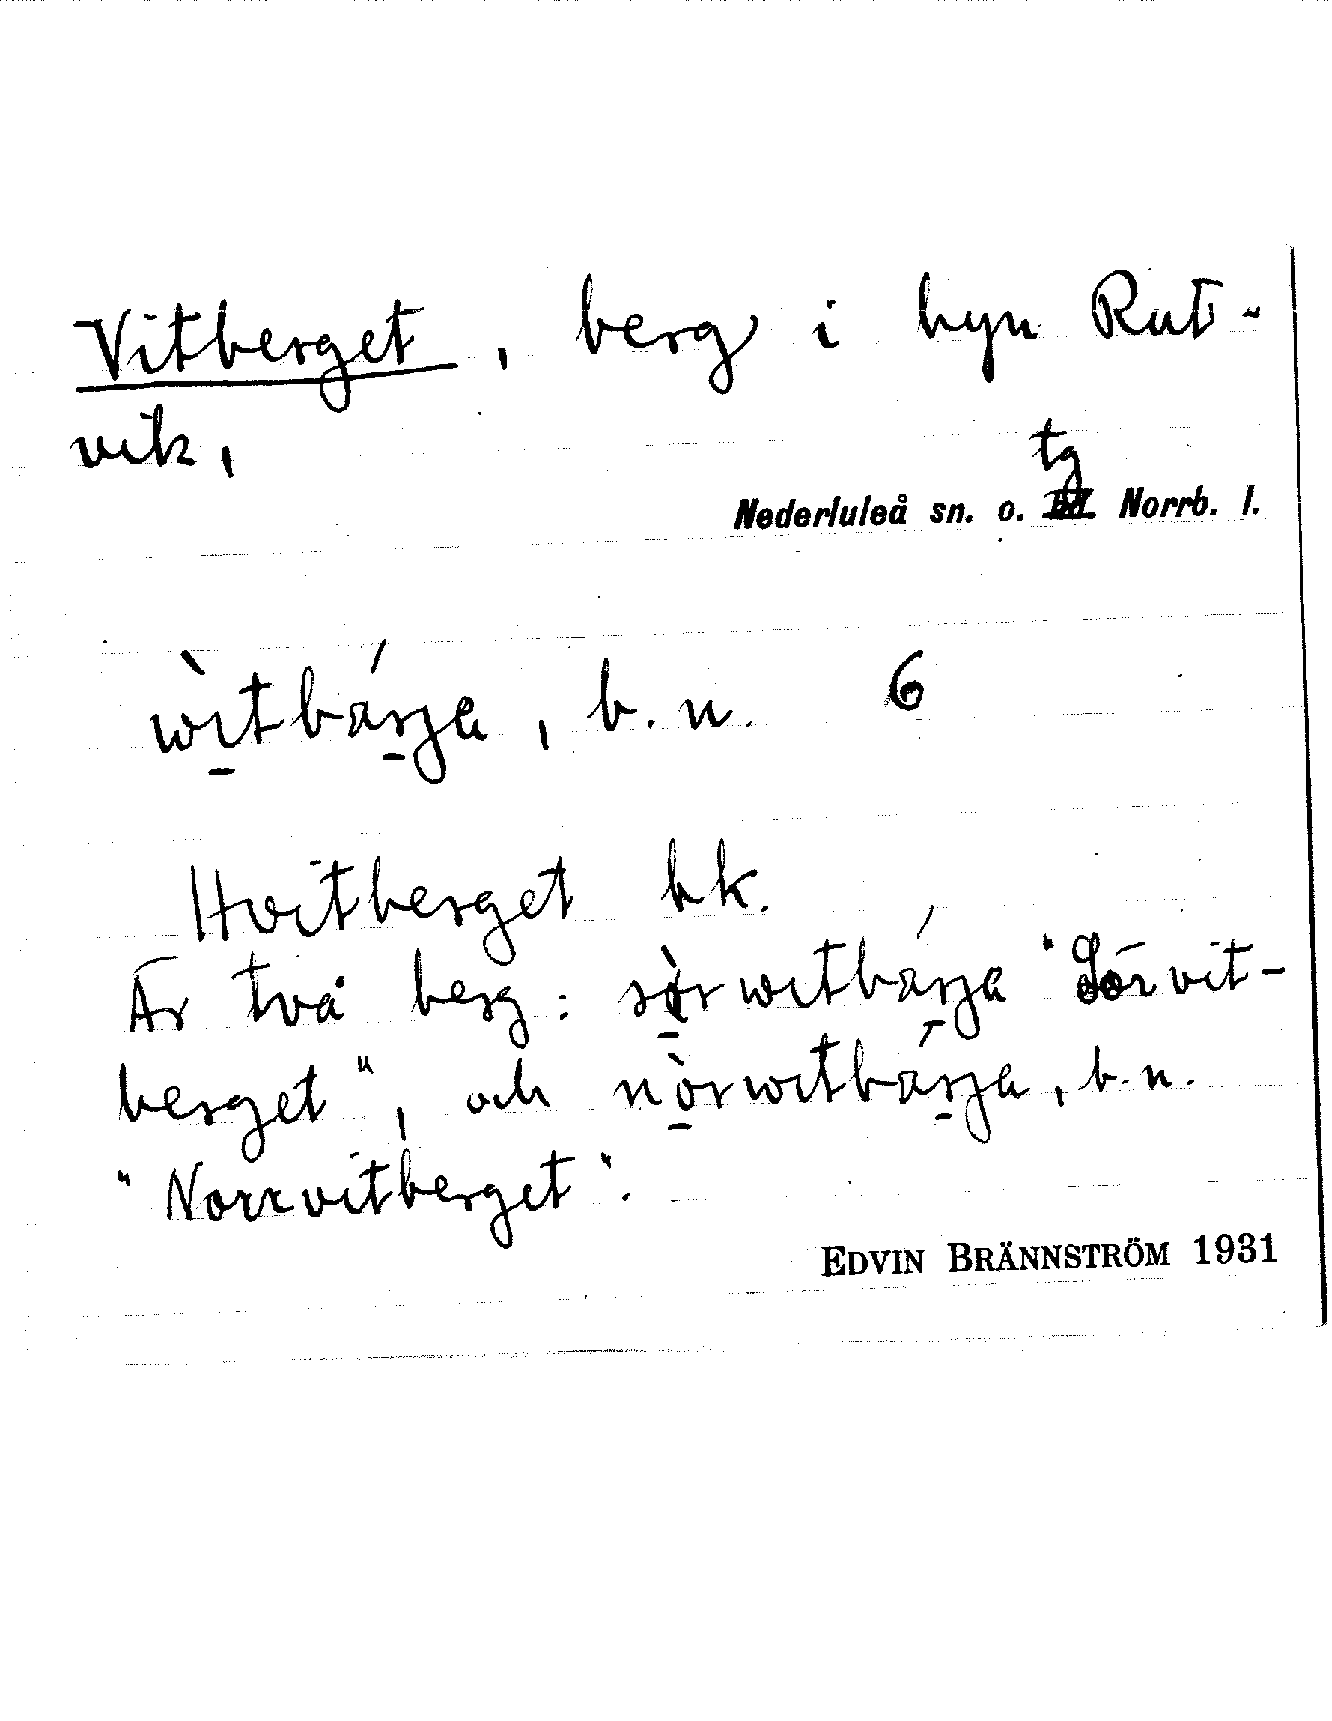 Vitberget, berg i byn Rut-
vik,
tg
Nederluleå sn. o. Norrb. l.
wìtbárja, b. n. 6
Hvitberget hk.
Är två berg: sòrwitbárja "Sörvit-
berget", och nòrwitbárja, b. n.
"Norrvitberget".
EDVIN BRÄNNSTRÖM 1931